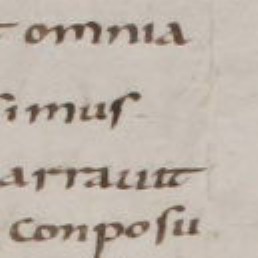 omnia
simus
arrauit
conposu